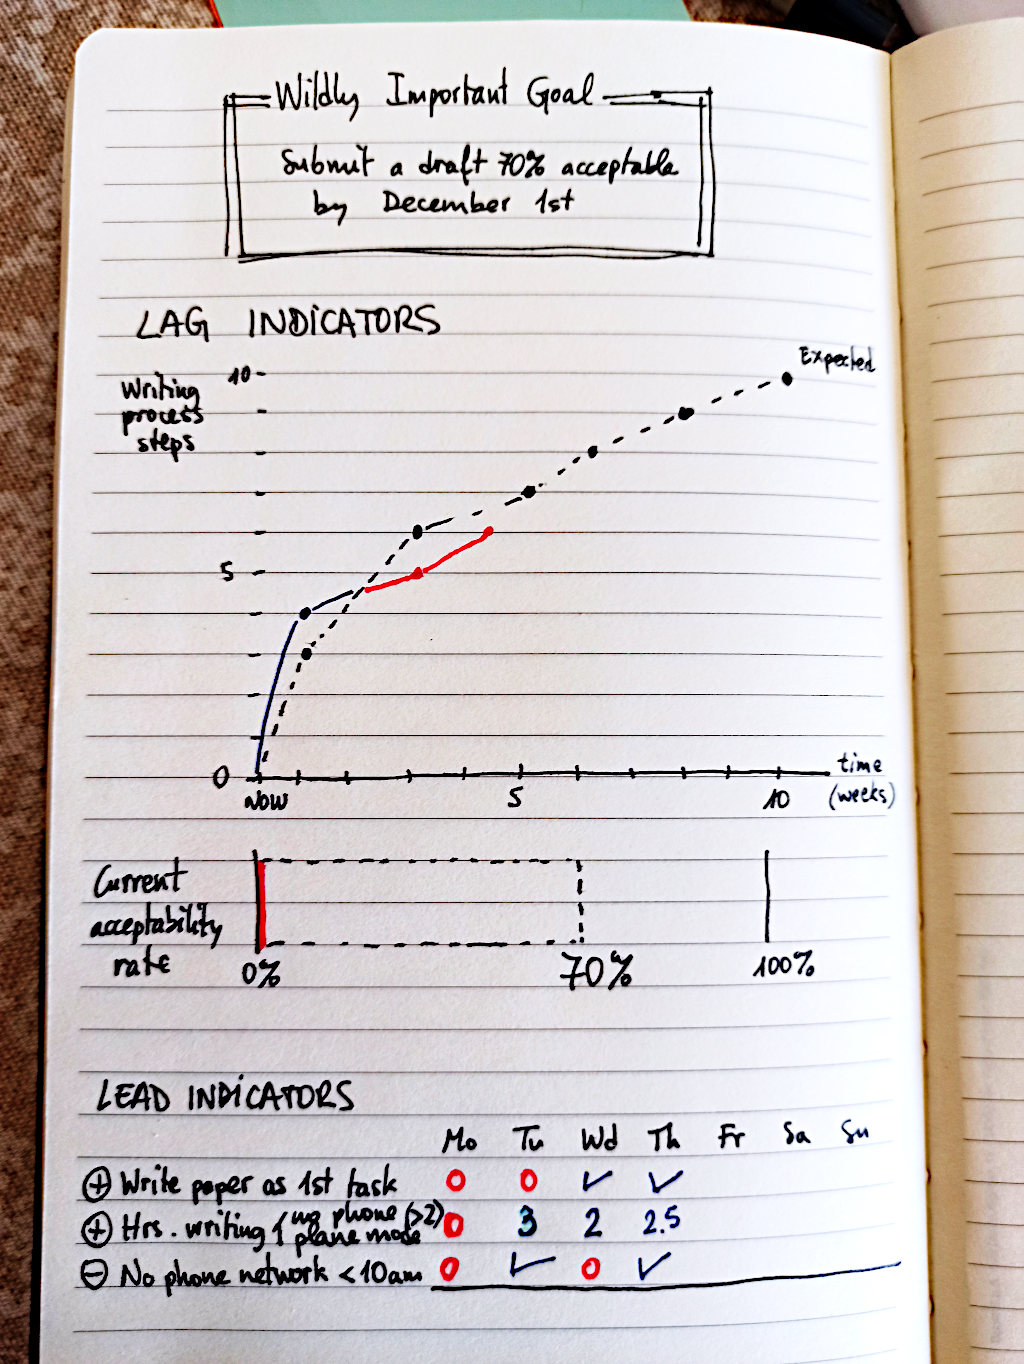 Wildly Important Goal
Submit a draft 70% acceptable
by December 1st
LAG INDICATORS
Writing
process
steps
10
Expected
5
0
Now
5
10
time
(weeks)
Current
acceptability
rate
0%
70%
100%
LEAD INDICATORS
Mo Tu Wd Th Fr Sa Su
+ Write paper as 1st task O O ✓ ✓
+ Hrs. writing { no phone (>2)
plane mode O 3 2 2.5
− No phone network <10am O ✓ O ✓